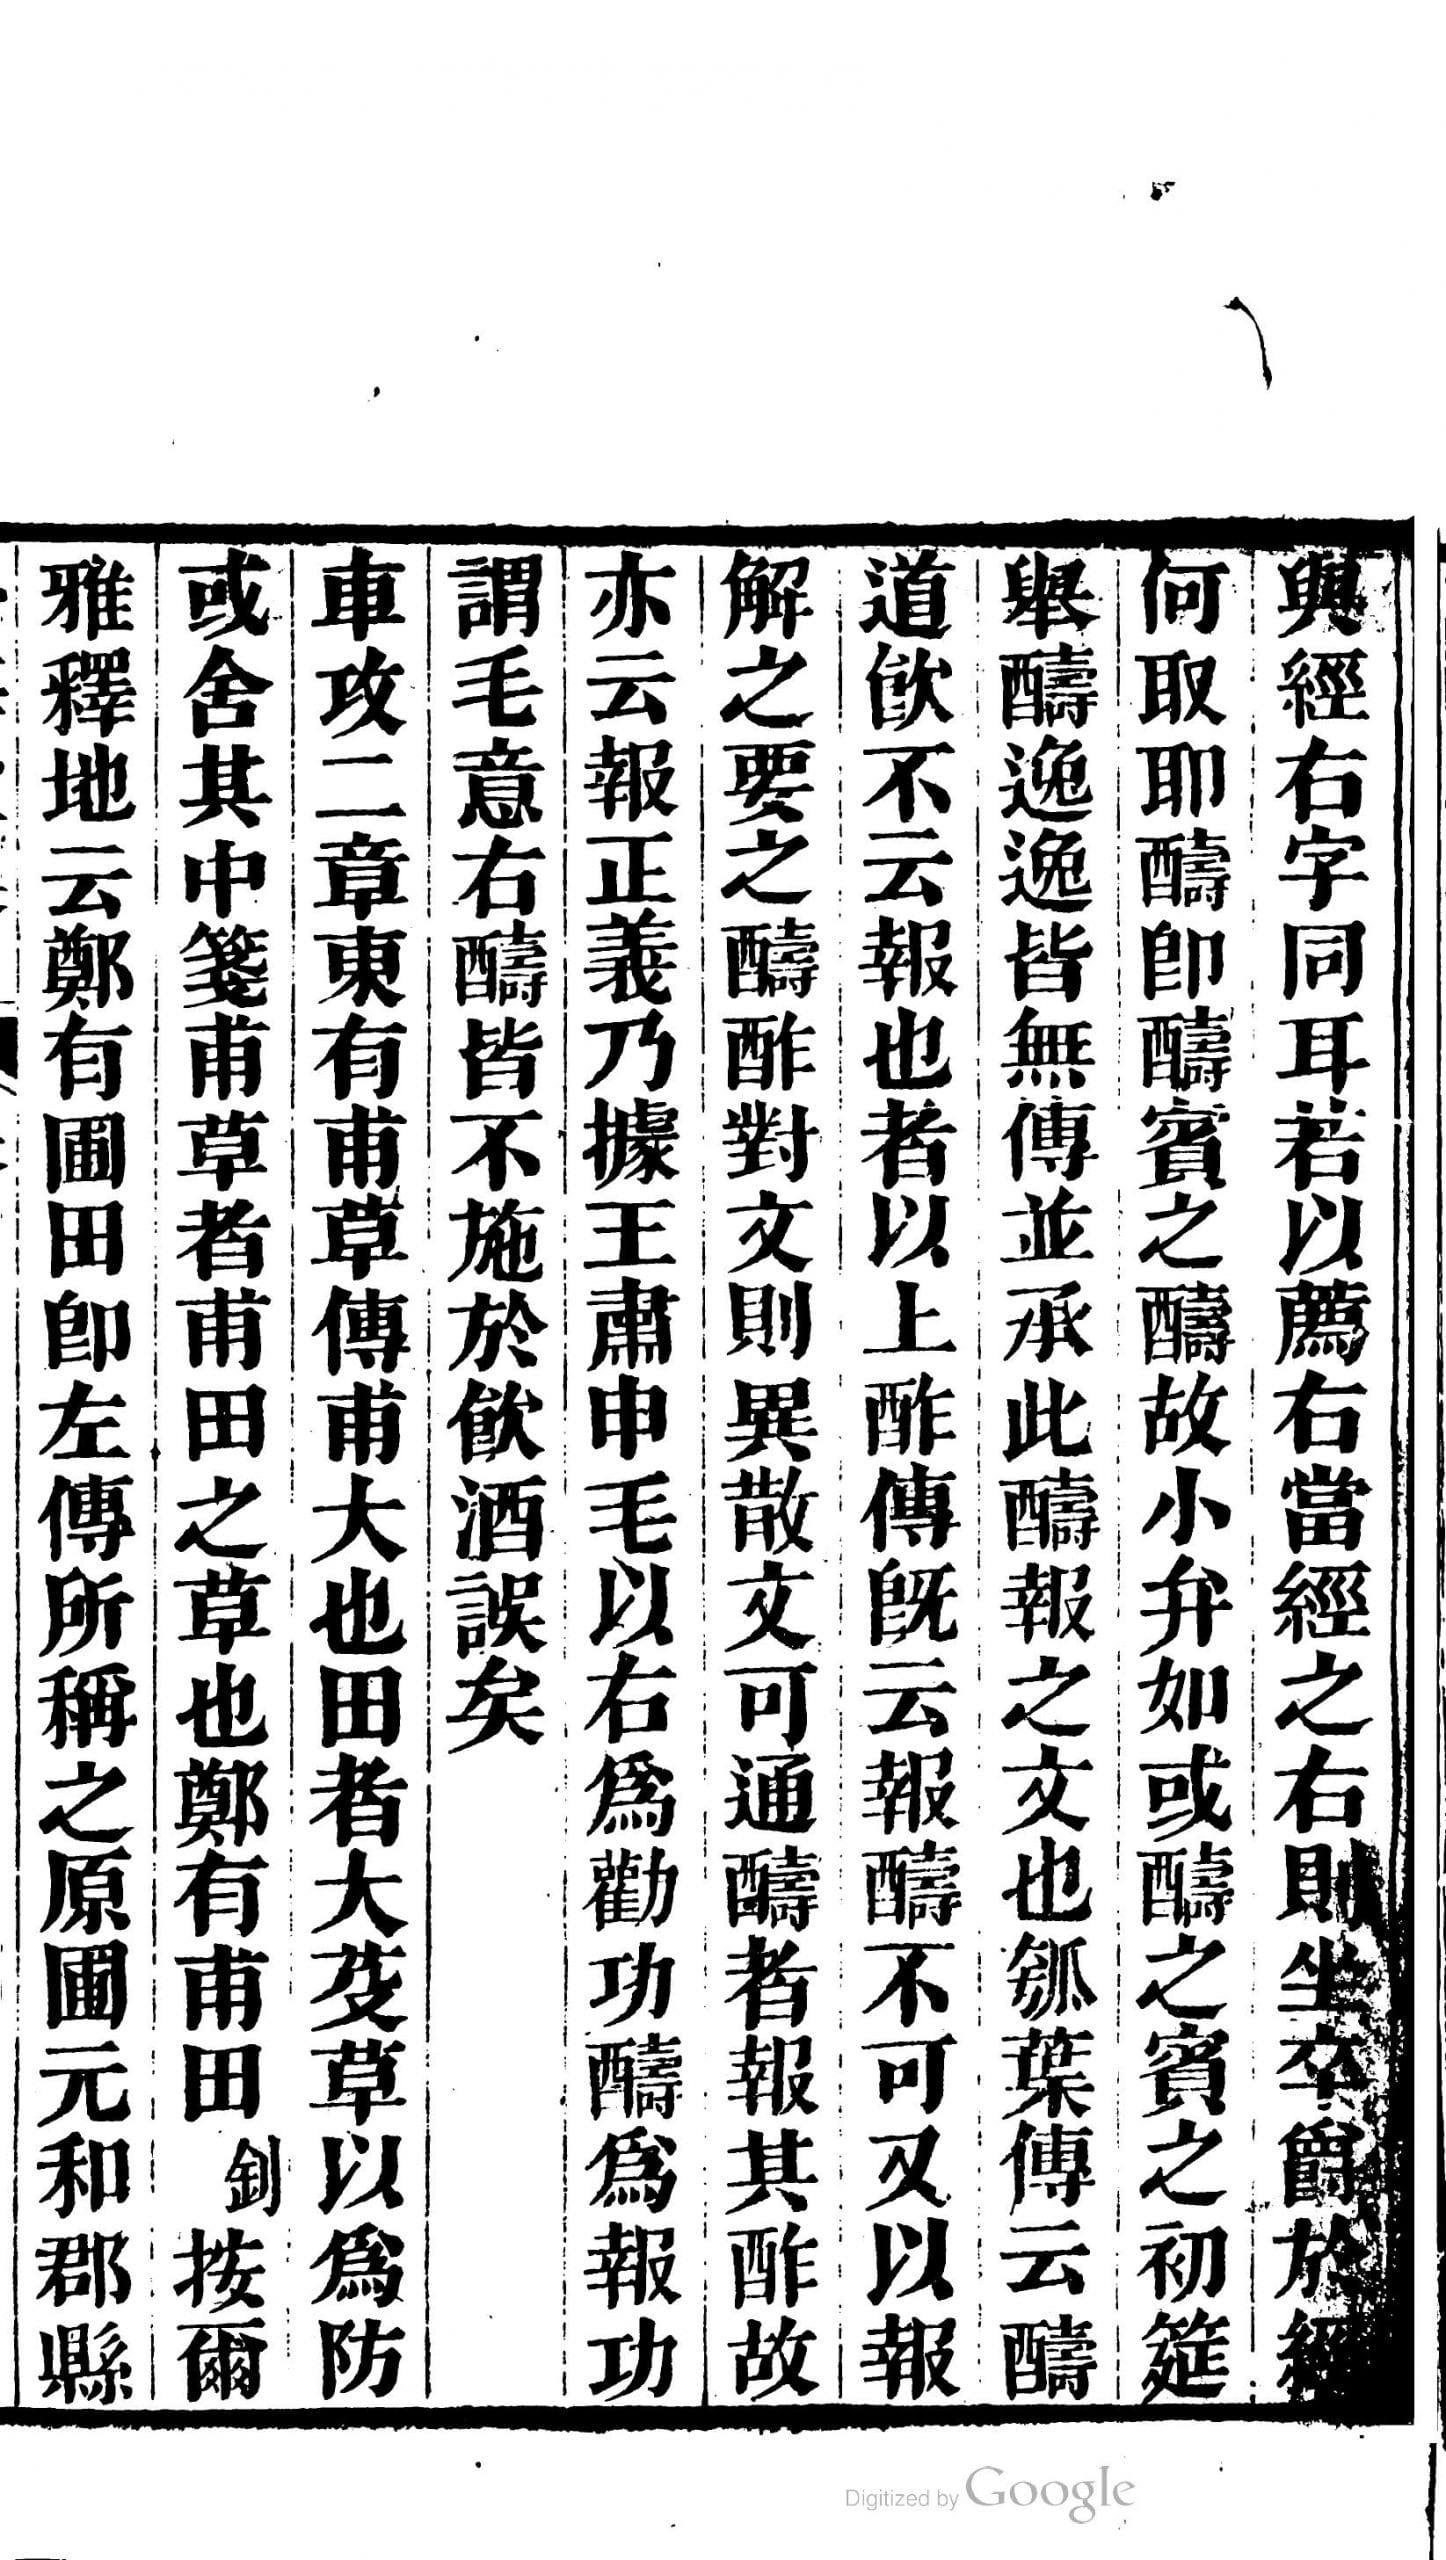 與經右字同耳若以薦右當經之右則坐卒爵於經
何取耶醻卽醻賓之醻故小弁如或醻之賓之初筵
舉醻逸逸皆無傳並承此醻報之文也瓠葉傳云醻
道飲不云報也者以上酢傳旣云報醻不可又以報
解之要之醻酢對文則異散文可通醻者報其酢故
亦云報正義乃據王肅申毛以右爲勸功醻爲報功
謂毛意右醻皆不施於飲酒誤矣
車攻二章東有甫草傳甫大也田者大芟草以爲防
或舍其中箋甫草者甫田之草也鄭有甫田釗按爾
雅釋地云鄭有圃田卽左傳所稱之原圃元和郡縣
Digitized by Google